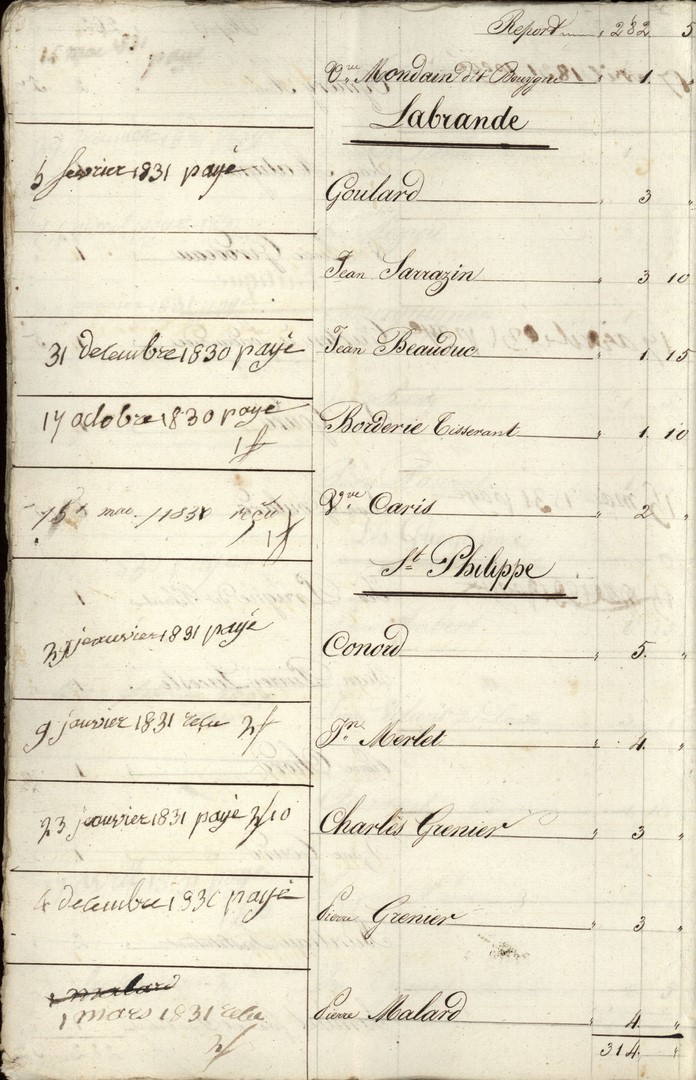 Report 282 5
Vve Mondain dit Bouygne 1
Labrande
5 fevrier 1831 payé
Goulard 3 "
Jean Sarrazin " 3 10
31 decembre 1830 payé
Jean Beauduc " 1 15
17 octobre 1830 payé
1f
Borderie Tisserant " 1 10
15 1f
Vve Caris " 2 "
St Philippe
jeanvier 1831 payé
Conord " 5 "
9 janvier 1831 recu 2f
Jn Merlet " 4 "
23 jeanvier 1831 payé 2f10
Charles Grenier " 3 "
4 decembre 1830 payé
Pierre Grenier " 3 "
malard
1 mars 1831 recu
2f
Pierre Malard " 4 "
314 "